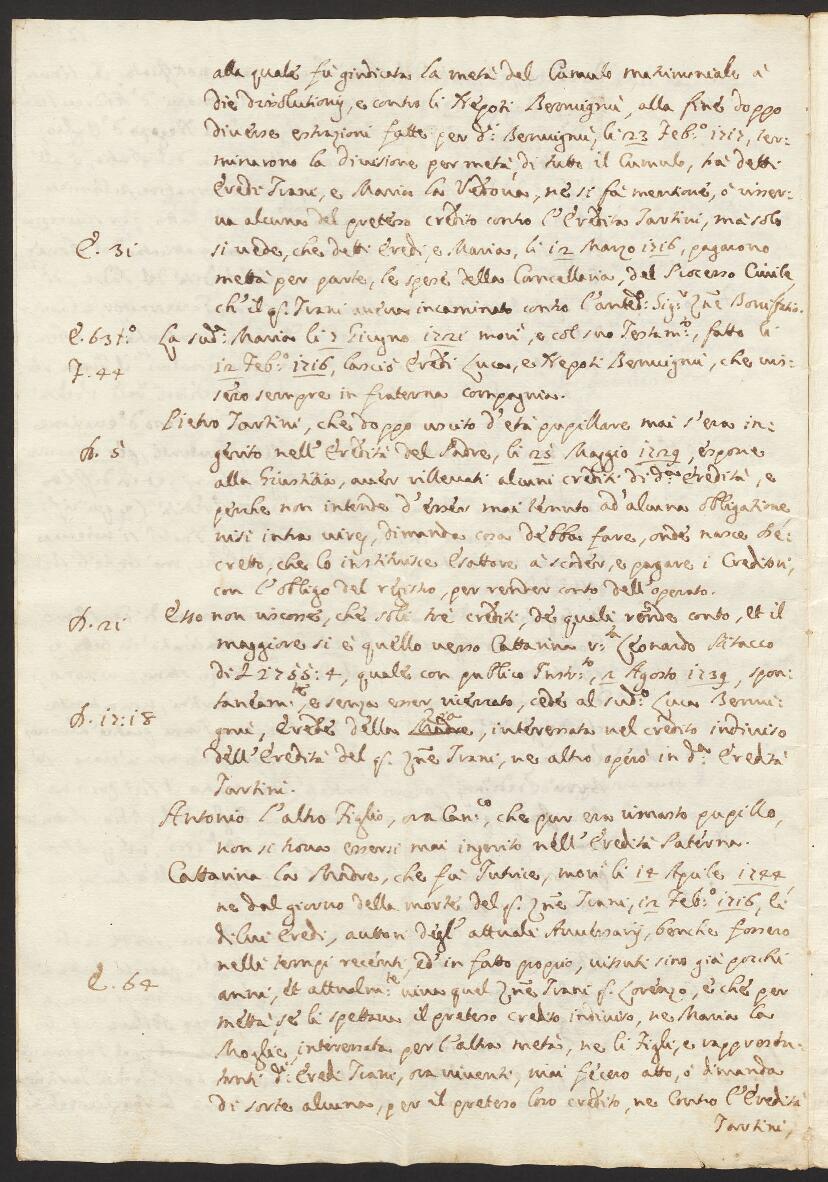 alla quale fù giudicata la metà del Cumulo matrimoniale à
die dissolutionis, e contro li Nepoti Benuignù, alla fine doppo
diverse estrazioni fatte per d.i Benuignù, li 23 Feb.o 1717, ter-
minarono la divisione per metà, di tutto il Cumulo, trà detti
Eredi Trani, e Maria la Vedova, ne si fà mentione, ò riser-
va alcuna del preteso credito contro l'Eredità Tartini, mà solo
E. 31 si vede, che detti Eredi, e Maria, li 12 Marzo 1716, pagarono
mettà per parte, le spese della Cancellaria, del Processo Civile
ch'il q. Trani aveva incaminato contro l'anted.o Sig.r Zne Bonifatio.
E. 63 t.o La sud.a Maria li 7 Giugno 1721 morì, e col suo Testam.to, fatto li
F. 44 12 Feb.o 1716, lasciò Eredi Luca, e Nepoti Benuignù, che vis-
sero sempre in fraterna compagnia.
Pietro Tartini, che doppo uscito d'età pupillare mai s'era in-
D. 5 gerito nell'Eredità del Padre, li 25 Maggio 1729, espone
alla Giustitia, aver rillevati alcuni crediti di d.a Eredità, e
perche non intende d'esser mai tenuto ad'alcuna obligazione
nisi intra vires, dimanda cosa debba fare, onde nasce De-
cretto, che lo instituisce Esattore à scoder, e pagare i Creditori,
con l'obligo del registro, per render conto dell'operato.
D. 21 Esso non riscosse, che soli trè crediti, de quali rende conto, et il
maggiore si è quello verso Cattarina r.ta Leonardo Pitacco
di L 2755: 4, quale con publico Instr.to, 2 Agosto 1739, spon-
taneam.te, e senza esser ricercato, cede al sud.o Luca Benui-
D. 17: 18 gnù, Erede della Maria, interessata nel credito indiviso
dell'Eredità del q. Zne Trani, ne altro operò in d.a Eredità
Tartini.
Antonio l'altro Figlio, ora Can.co, che pur era rimasto pupillo,
non si trova essersi mai ingerito nell'Eredità Paterna.
Cattarina la Madre, che fù Tutrice, morì li 14 Aprile 1744
ne dal giorno della morte del q. Zne Trani, 12 Feb.o 1716, li
di lui Eredi, auttori degl'attuali Aversarij, benche fossero
nelli tempi recenti, ed in fatto proprio, vissuti sino già pochi
E. 64 anni, et attualm.te viva quel Zne Trani q. Lorenzo, e che per
mettà se li spettava il preteso credito indiviso, ne Maria la
Moglie, interessata per l'altra metà, ne li Figli, e rappresen-
tanti d.i Eredi Trani, ora viventi, mai fecero atto, ò dimanda
di sorte alcuna, per il preteso loro credito, ne contro l'Eredità
Tartini,